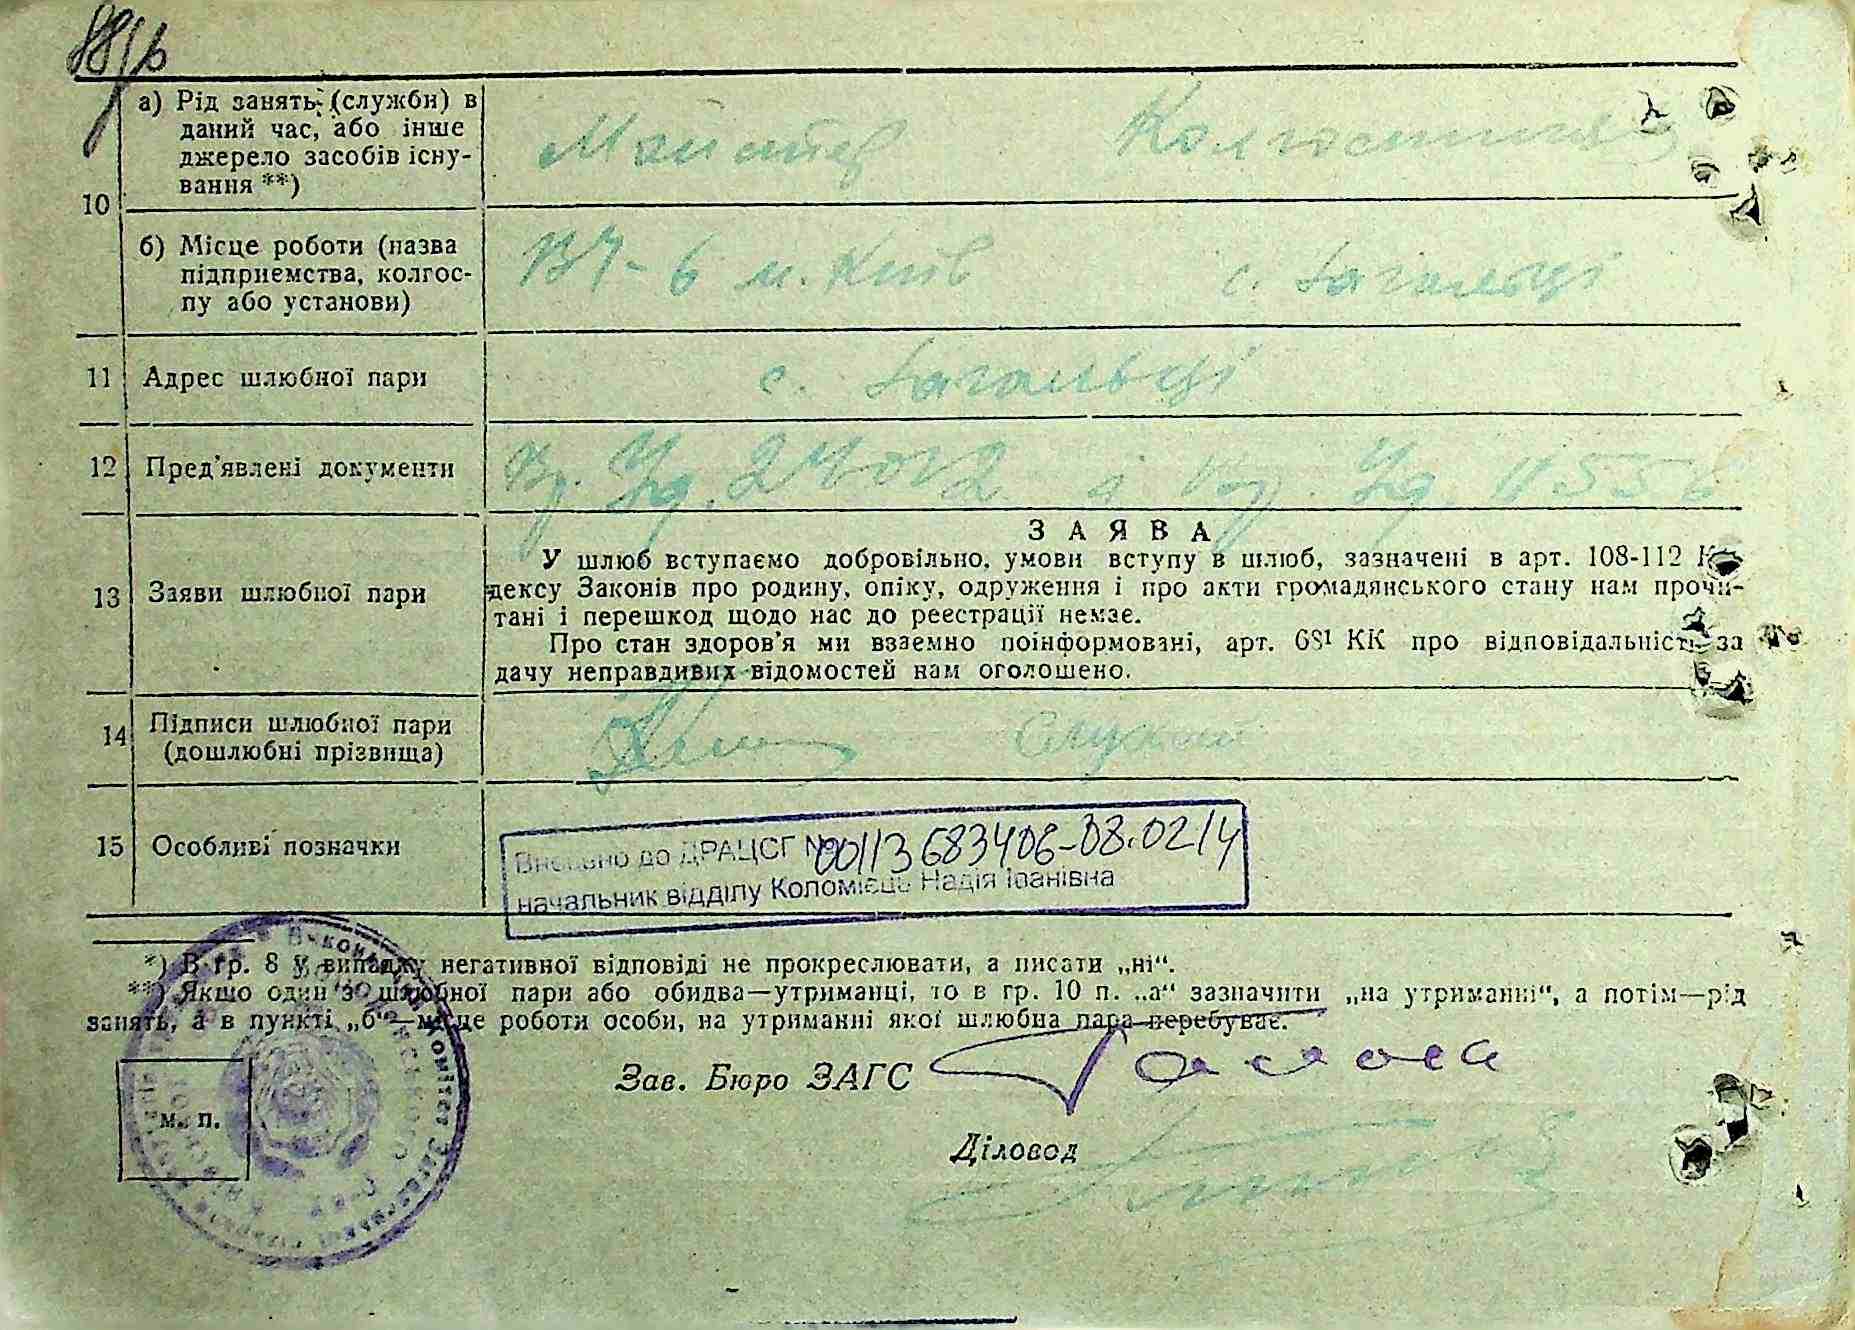 а) Рід занять (служби) в
даний час, або інше
джерело засобів існу-
вання **)
Майстер Колгоспниця
10
б) Місце роботи (назва
підприємства, колгос-
пу або установи)
м. Київ с. Загальці
11 Адрес шлюбної пари с. Загальці
12 Пред'явлені документи
ЗАЯВА
У шлюб вступаємо добровільно, умови вступу в шлюб, зазначені в арт. 108-112 Ко-
13 Заяви шлюбної пари дексу Законів про родину, опіку, одруження і про акти громадянського стану нам прочи-
тані і перешкод щодо нас до реестрації немає.
Про стан здоров'я ми взаємно поінформовані, арт. 68¹ КК про відповідальність за
дачу неправдивих відомостей нам оголошено.
14 Підписи шлюбної пари
(дошлюбні прізвища)
15 Особливі позначки
Внесено до ДРАЦСГ № 00113683406-08.02.14
начальник відділу Коломієць Надія Іванівна
*) В гр. 8 у випадку негативної відповіді не прокреслювати, а писати „ні“.
**) Якщо один з шлюбної пари або обидва—утриманці, то в гр. 10 п. „а“ зазначити „на утриманні“, а потім—рід
занять, а в пункті „б“—місце роботи особи, на утриманні якої шлюбна пара перебуває.
Зав. Бюро ЗАГС
м. п.
Діловод